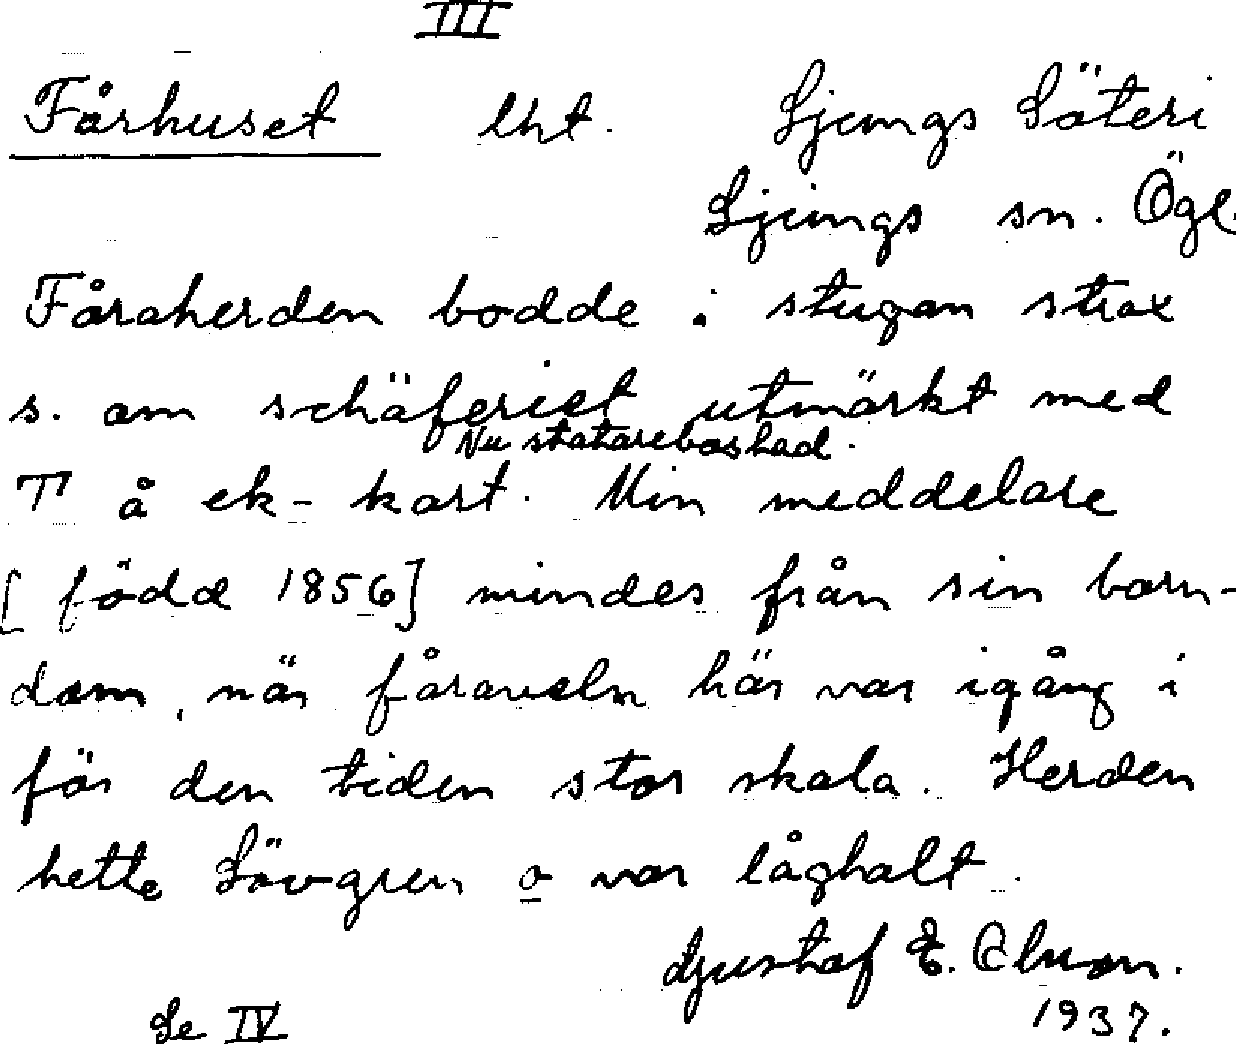 III
Fårhuset lht. Ljungs Säteri
Ljungs sn. Ögl.
Fåraherden bodde i stugan strax
s. om schäferiet utmärkt med
Nu statarebostad.
T å ek-kart. Min meddelare
[född 1856] mindes från sin barn-
dom, när fåraveln här var igång i
för den tiden stor skala. Herden
hette Lövgren o var låghalt.
Gustaf E.
1937.
Se IV